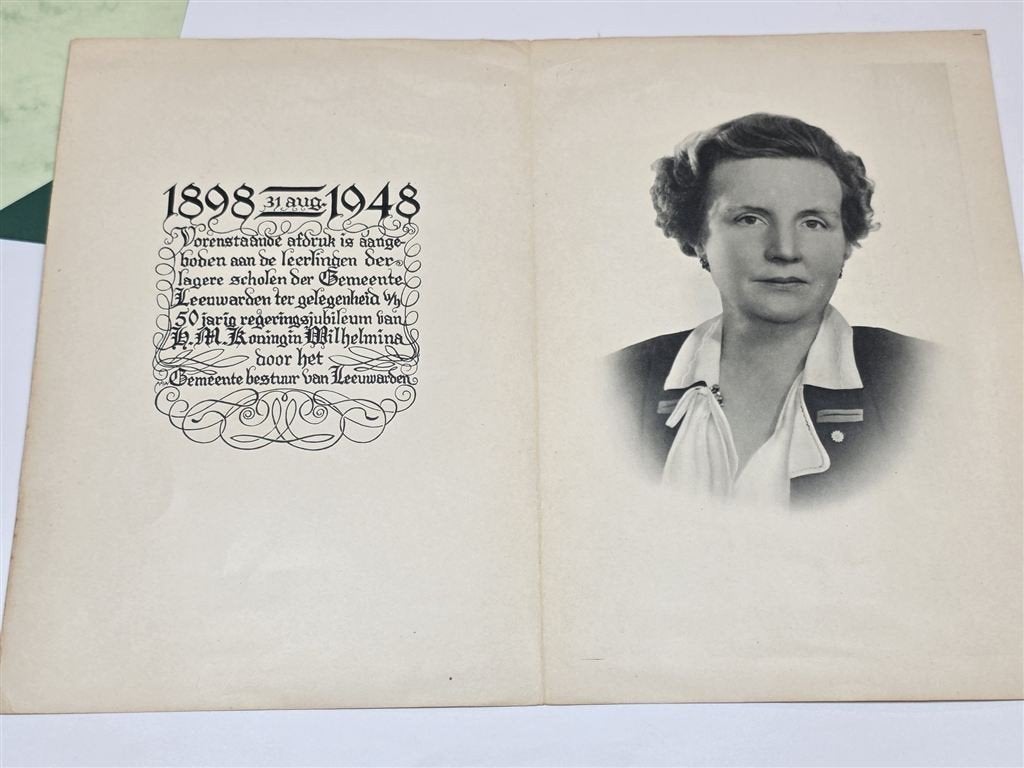 1898 31 aug. 1948
Vorenstaande afdruk is aange-
boden aan de leerlingen der
lagere scholen der Gemeente
Leeuwarden ter gelegenheid v/h
50 jarig regeringsjubileum van
H.M. Koningin Wilhelmina
door het
Gemeente bestuur van Leeuwarden